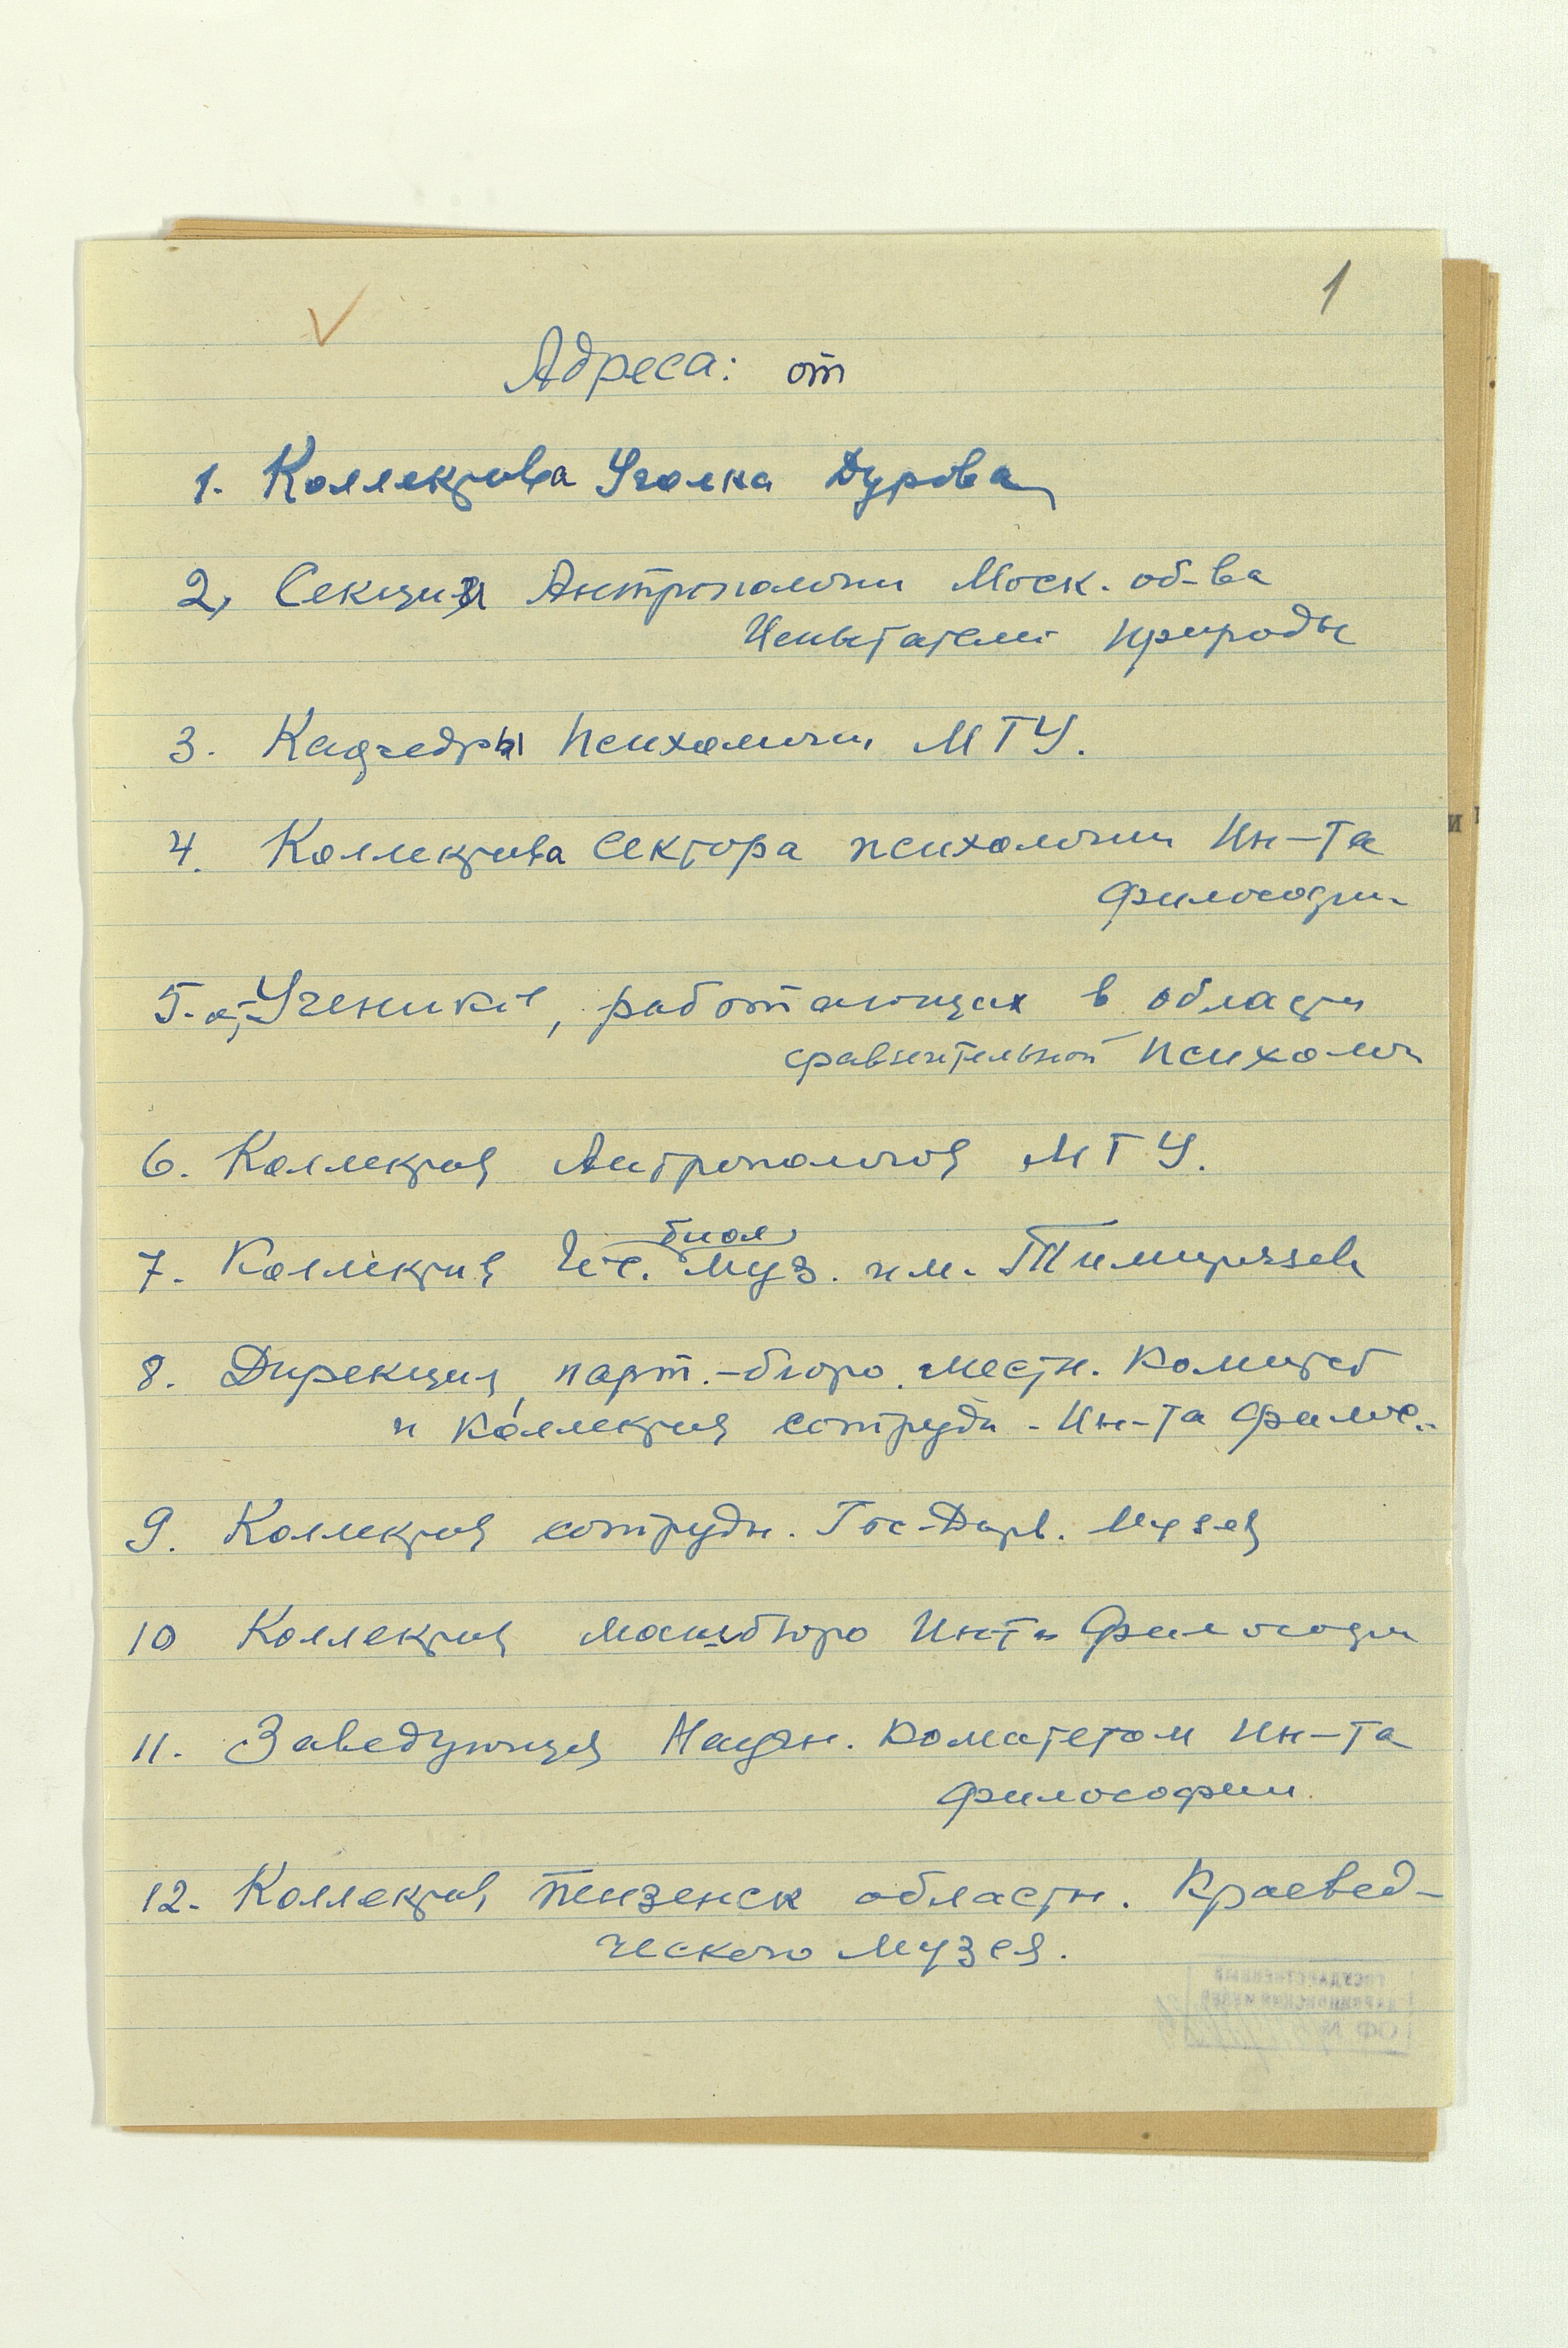 1
Адреса: от
1. Коллектива Уголка Дурова
2, Секции Антропологии Моск. об-ва
Испытателей природы
3. Кафедры психологии МГУ.
4. Коллектива сектора психологии Ин-та
философии
5. Учеников, работающих в области
сравнительной психологи
6. Коллектив Антропологов МГУ.
биол
7. Коллектив муз. им. Тимирязева
8. Дирекция, парт.-бюро. местн. Комитет
и коллектив сотрудн. Ин-та филос.
9. Коллектив сотрудн. Гос. Дарв. Музея
10 Коллектив машбюро Инта Философии
11. Заведующая Научн. Комитетом Ин-та
философии.
12. Коллектив Пензенск областн. Краевед-
ческого музея.
ГОСУДАРСТВЕННЫЙ
ДАРВИНОВСКИЙ МУЗЕЙ
ОФ №